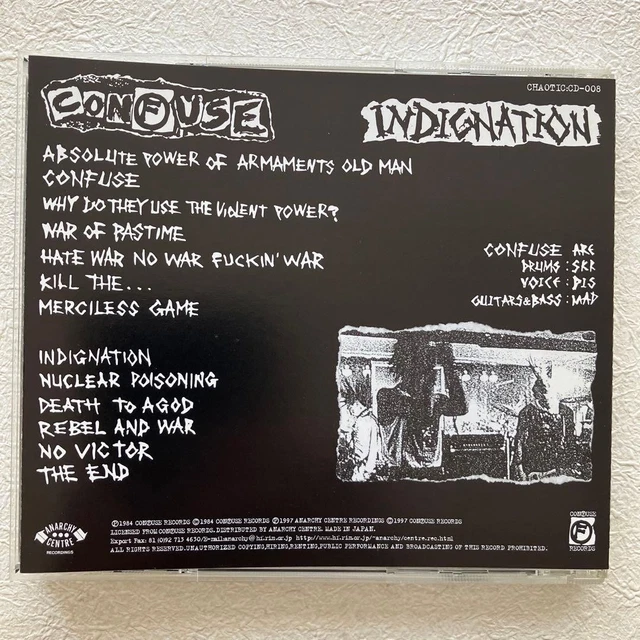 CHAOTIC:CD-008
CONFUSE
INDIGNATION
ABSOLUTE POWER OF ARMAMENTS OLD MAN
CONFUSE
WHY DO THEY USE THE VIOLENT POWER?
WAR OF PASTIME
HATE WAR NO WAR FUCKIN' WAR
KILL THE...
MERCILESS GAME
CONFUSE ARE
DRUMS : SKR
VOICE : DIS
GUITARS&BASS : MAD
INDIGNATION
NUCLEAR POISONING
DEATH TO AGOD
REBEL AND WAR
NO VICTOR
THE END
ANARCHY
CENTRE
RECORDINGS
Ⓟ1984 CONFUSE RECORDS ©1984 CONFUSE RECORDS Ⓟ1997 ANARCHY CENTRE RECORDINGS ©1997 CONFUSE RECORDS
LICENSED FROM CONFUSE RECORDS. DISTRIBUTED BY ANARCHY CENTRE. MADE IN JAPAN.
Export Fax: 81 (0)92 713 4630/E-mail:anarchy@hf.rim.or.jp http://www.hf.rim.or.jp/~anarchy/centre.rec.html
ALL RIGHTS RESERVED.UNAUTHORIZED COPYING,HIRING,RENTING,PUBLIC PERFORMANCE AND BROADCASTING OF THIS RECORD PROHIBITED.
CONFUSE
F
RECORDS